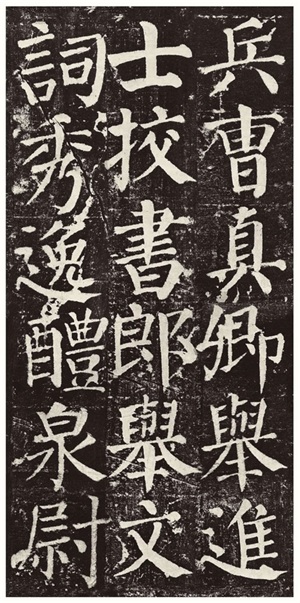 兵曹真卿舉進
士挍書郎舉文
詞秀逸醴泉尉